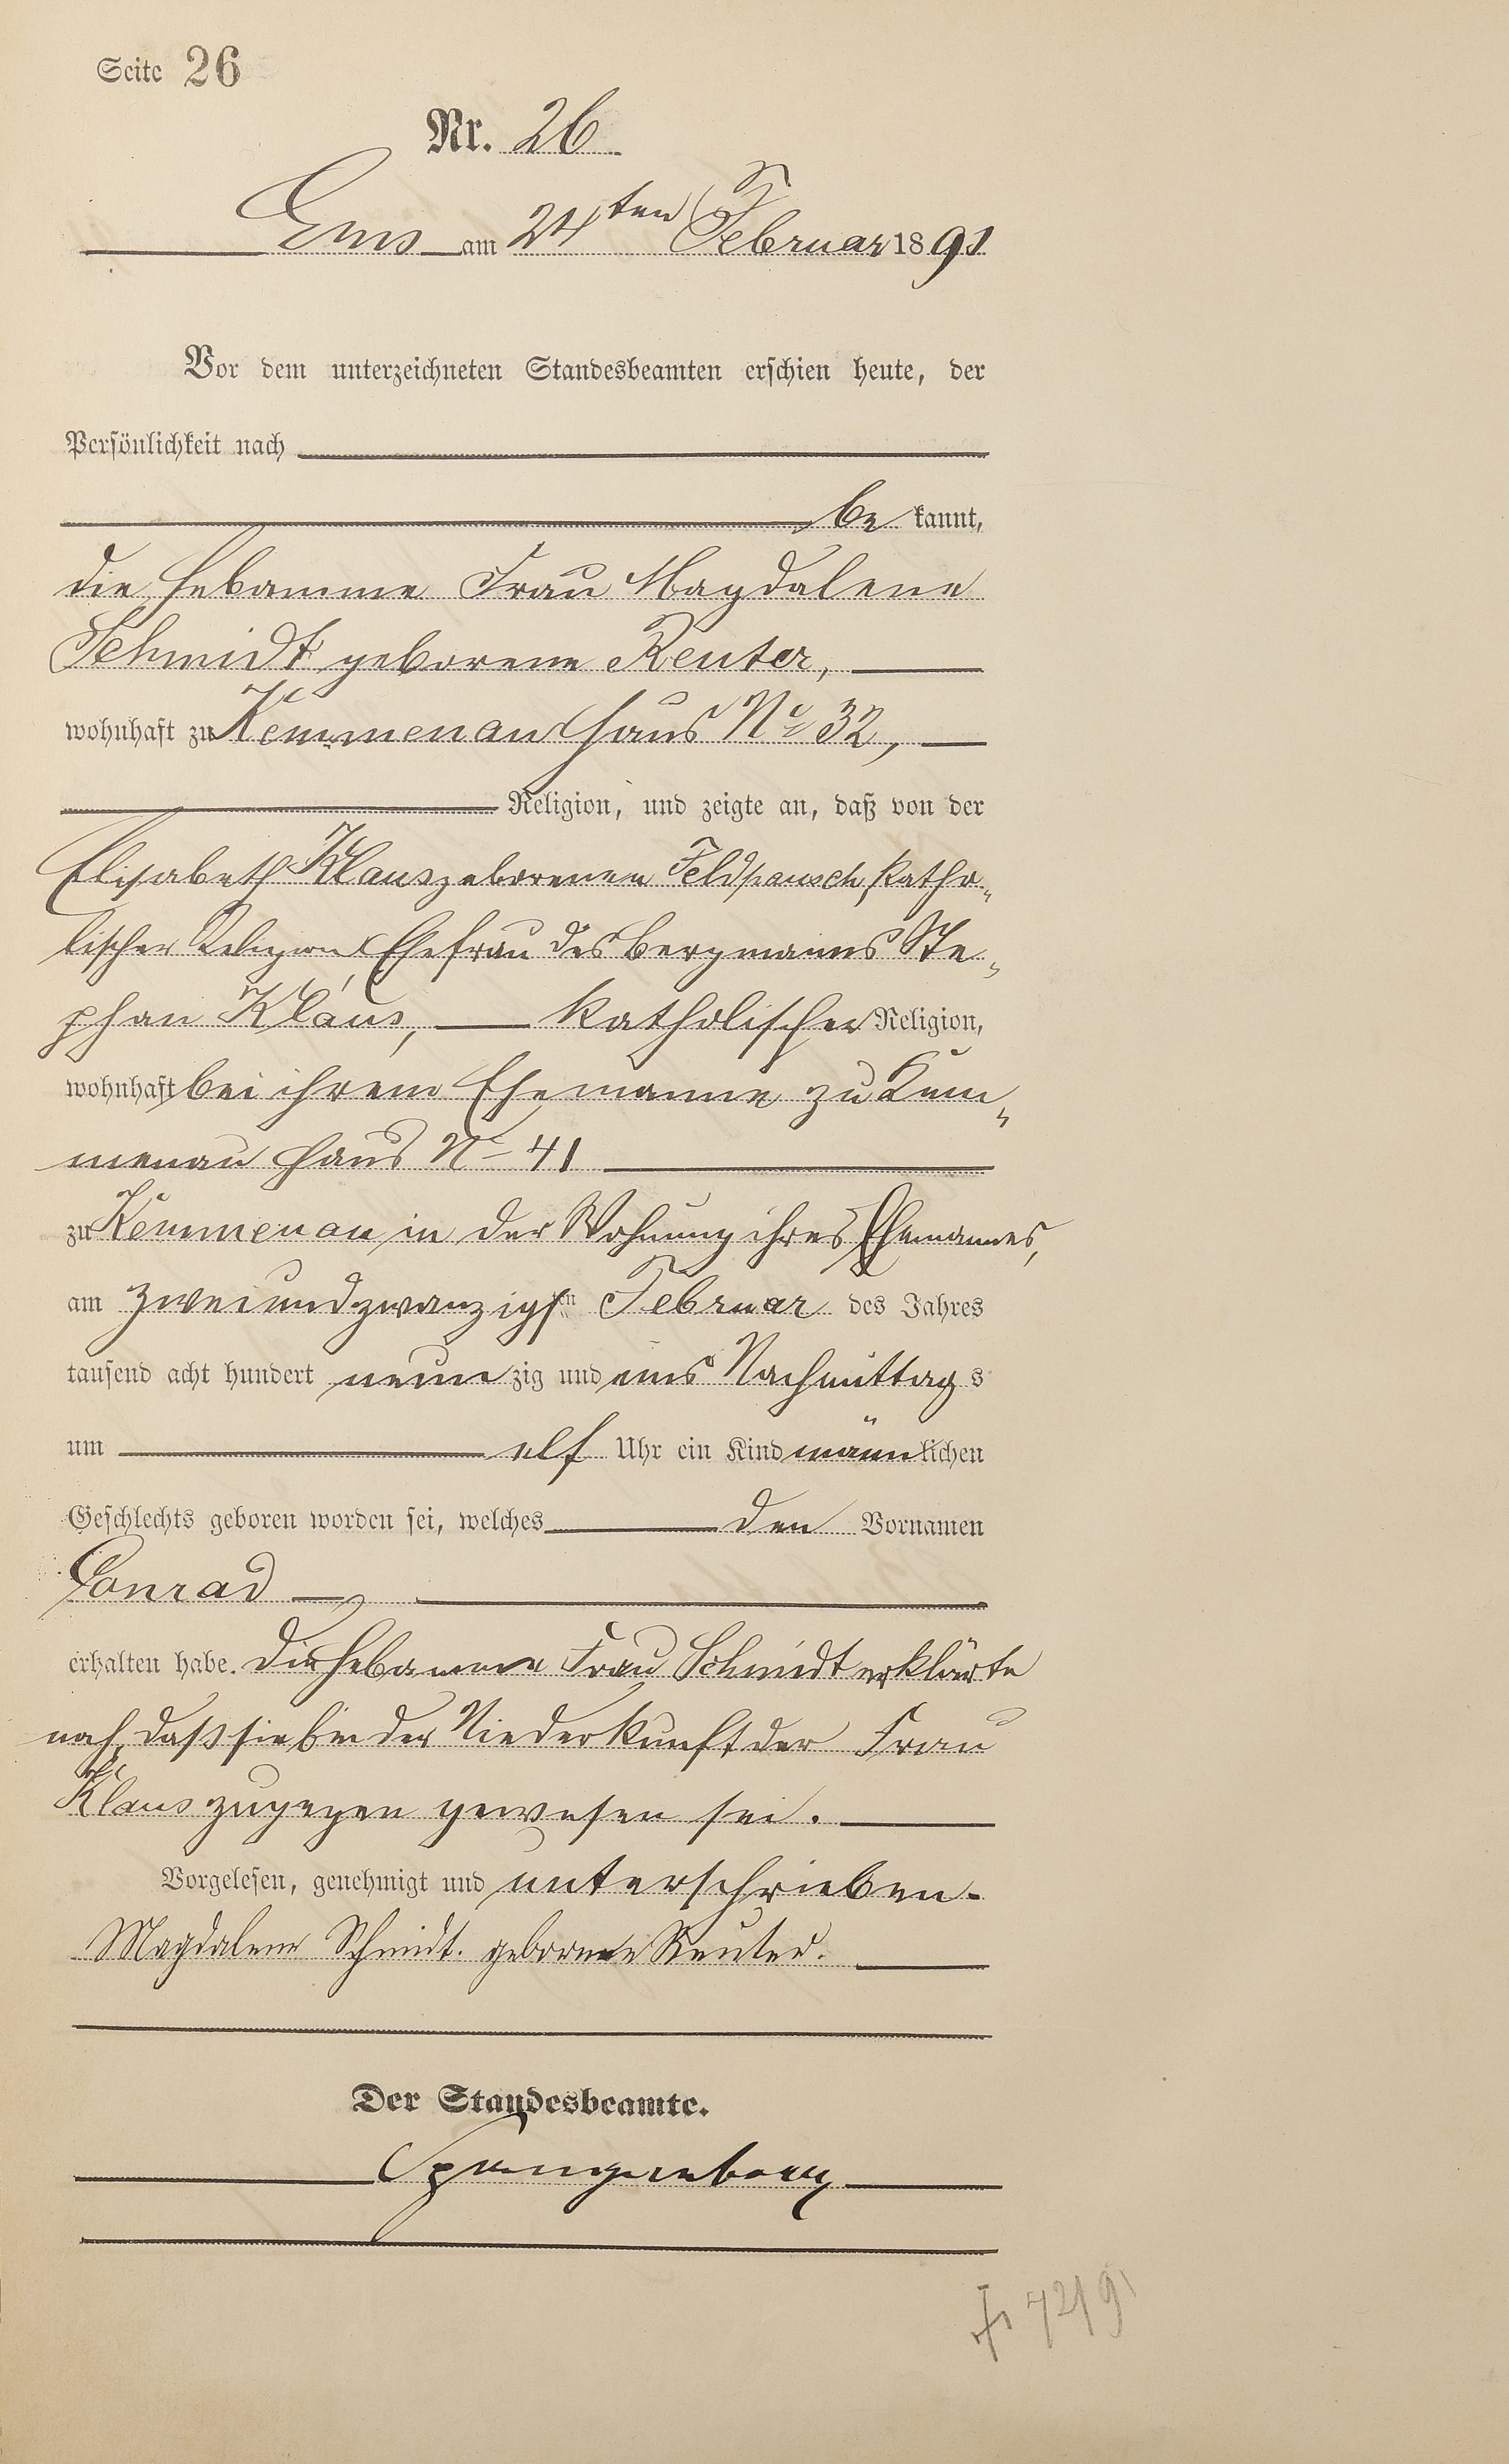 Seite 26
Nr. 26
Ems am 24ten Februar 1891
Vor dem unterzeichneten Standesbeamten erschien heute, der
Persönlichkeit nach
be kannt,
die Hebamme Frau Magdalene
Schmidt geborene Reuter,
wohnhaft zu Kemmenau Haus No 32,
Religion, und zeigte an, daß von der
Elisabeth Klaus geborenen Feldpausch, katho-
lischer Religion, Ehefrau des Bergmanns Ste-
phan Klaus, katholischer Religion,
wohnhaft bei ihrem Ehemanne zu Kem-
menau Haus No 41
zu Kemmenau in der Wohnung ihres Ehemannes,
am zweiundzwanzigsten Februar des Jahres
tausend acht hundert neun zig und eins Nachmittag s
um elf Uhr ein Kind männ lichen
Geschlechts geboren worden sei, welches den Vornamen
Conrad
erhalten habe. Die Hebamme Frau Schmidt erklärte
noch, daß sie bei der Niederkunft der Frau
Klaus zugegen gewesen sei.
Vorgelesen, genehmigt und unterschrieben.
Magdalene Schmidt. geborene Reuter.
Der Standesbeamte.
Spangenberg